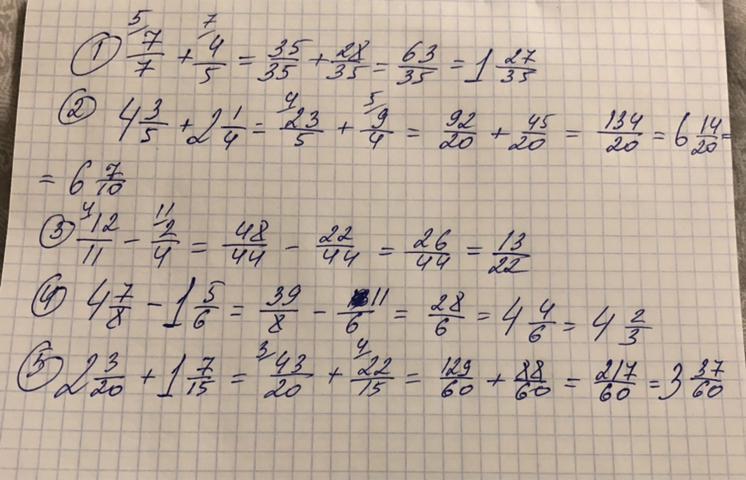 ① ⁵⁄7/7 + ⁷⁄4/5 = 35/35 + 28/35 = 63/35 = 1 27/35
② 4 3/5 + 2 1/4 = ⁴⁄23/5 + ⁵⁄9/4 = 92/20 + 45/20 = 134/20 = 6 14/20 =
= 6 7/10
③ ⁴⁄12/11 - ¹¹⁄2/4 = 48/44 - 22/44 = 26/44 = 13/22
④ 4 7/8 - 1 5/6 = 39/8 - 11/6 = 28/6 = 4 4/6 = 4 2/3
⑤ 2 3/20 + 1 7/15 = ³⁄43/20 + ⁴⁄22/15 = 129/60 + 88/60 = 217/60 = 3 37/60